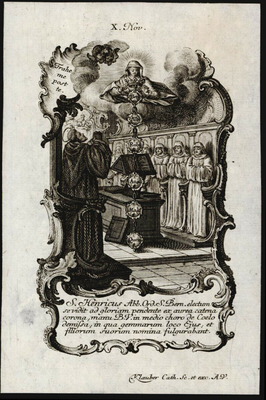 X. Nov.
Trahe
me
post
te.
S. Henricus Abb. Ord. S. Bern. electum
se vidit ad gloriam pendente ex aurea catena
corona, manu B.V. in medio choro de Coelo
demissa, in qua gemmarum loco Ejus, et
filiorum suorum nomina fulgurabant.
Klauber Cath. Sc. et exc. A.V.